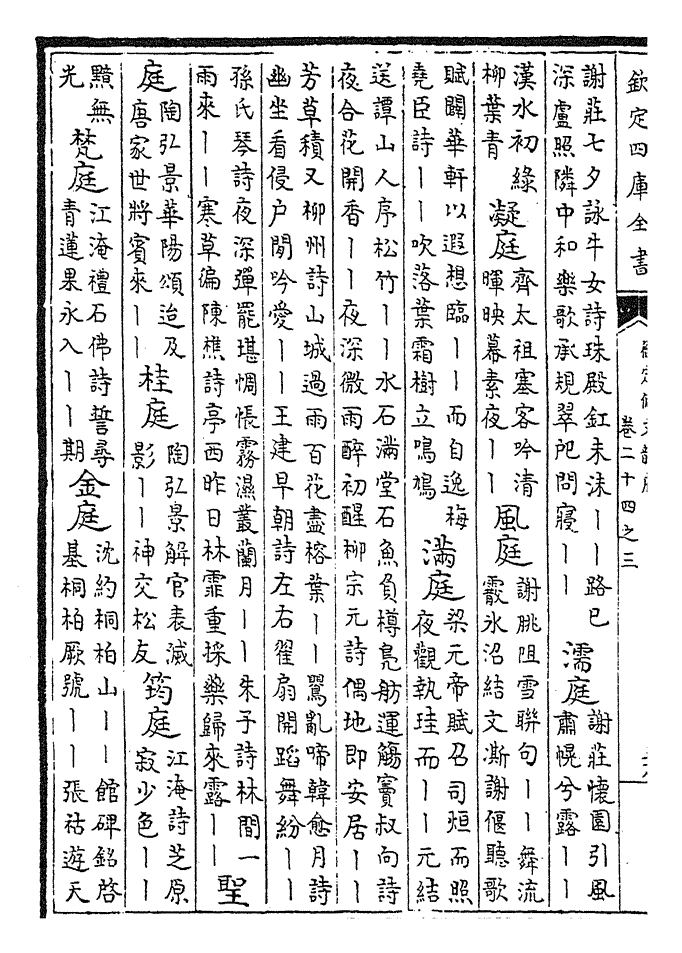 欽定四庫全書
卷二十四之三
謝莊七夕詠牛女詩珠殿釭未沬丨丨路已
深盧照隣中和樂歌承規翠𠨞問寢丨丨
濡庭
謝莊懐園引風
肅幌兮露丨丨
漢水初綠
柳葉青
凝庭
齊太祖塞客吟清
暉映幕素夜丨丨
風庭
謝朓阻雪聯句丨丨舞流
霰氷沼結文澌謝偃聽歌
賦闢華軒以遐想臨丨丨而自逸梅
堯臣詩丨丨吹落葉霜樹立鳴鳩
滿庭
梁元帝賦召司烜而照
夜觀執珪而丨丨元結
送譚山人序松竹丨丨水石滿堂石魚負樽鳧舫運觴竇叔向詩
夜合花開香丨丨夜深微雨醉初醒柳宗元詩偶地即安居丨丨
芳草積又柳州詩山城過雨百花盡榕葉丨丨鶯亂啼韓愈月詩
幽坐看侵户閒吟愛丨丨王建早朝詩左右翟扇開蹈舞紛丨丨
孫氏琴詩夜深彈罷堪惆悵霧濕叢蘭月丨丨朱子詩林間一
雨來丨丨寒草徧陳樵詩亭西昨日林霏重採藥歸來露丨丨
聖
庭
陶弘景華陽頌迨及
唐家世將賓來丨丨
桂庭
陶弘景解官表滅
影丨丨神交松友
筠庭
江淹詩芝原
寂少色丨丨
黯無
光
梵庭
江淹禮石佛詩誓尋
青蓮果永入丨丨期
金庭
沈約桐柏山丨丨館碑銘啓
基桐柏厥號丨丨張祜遊天